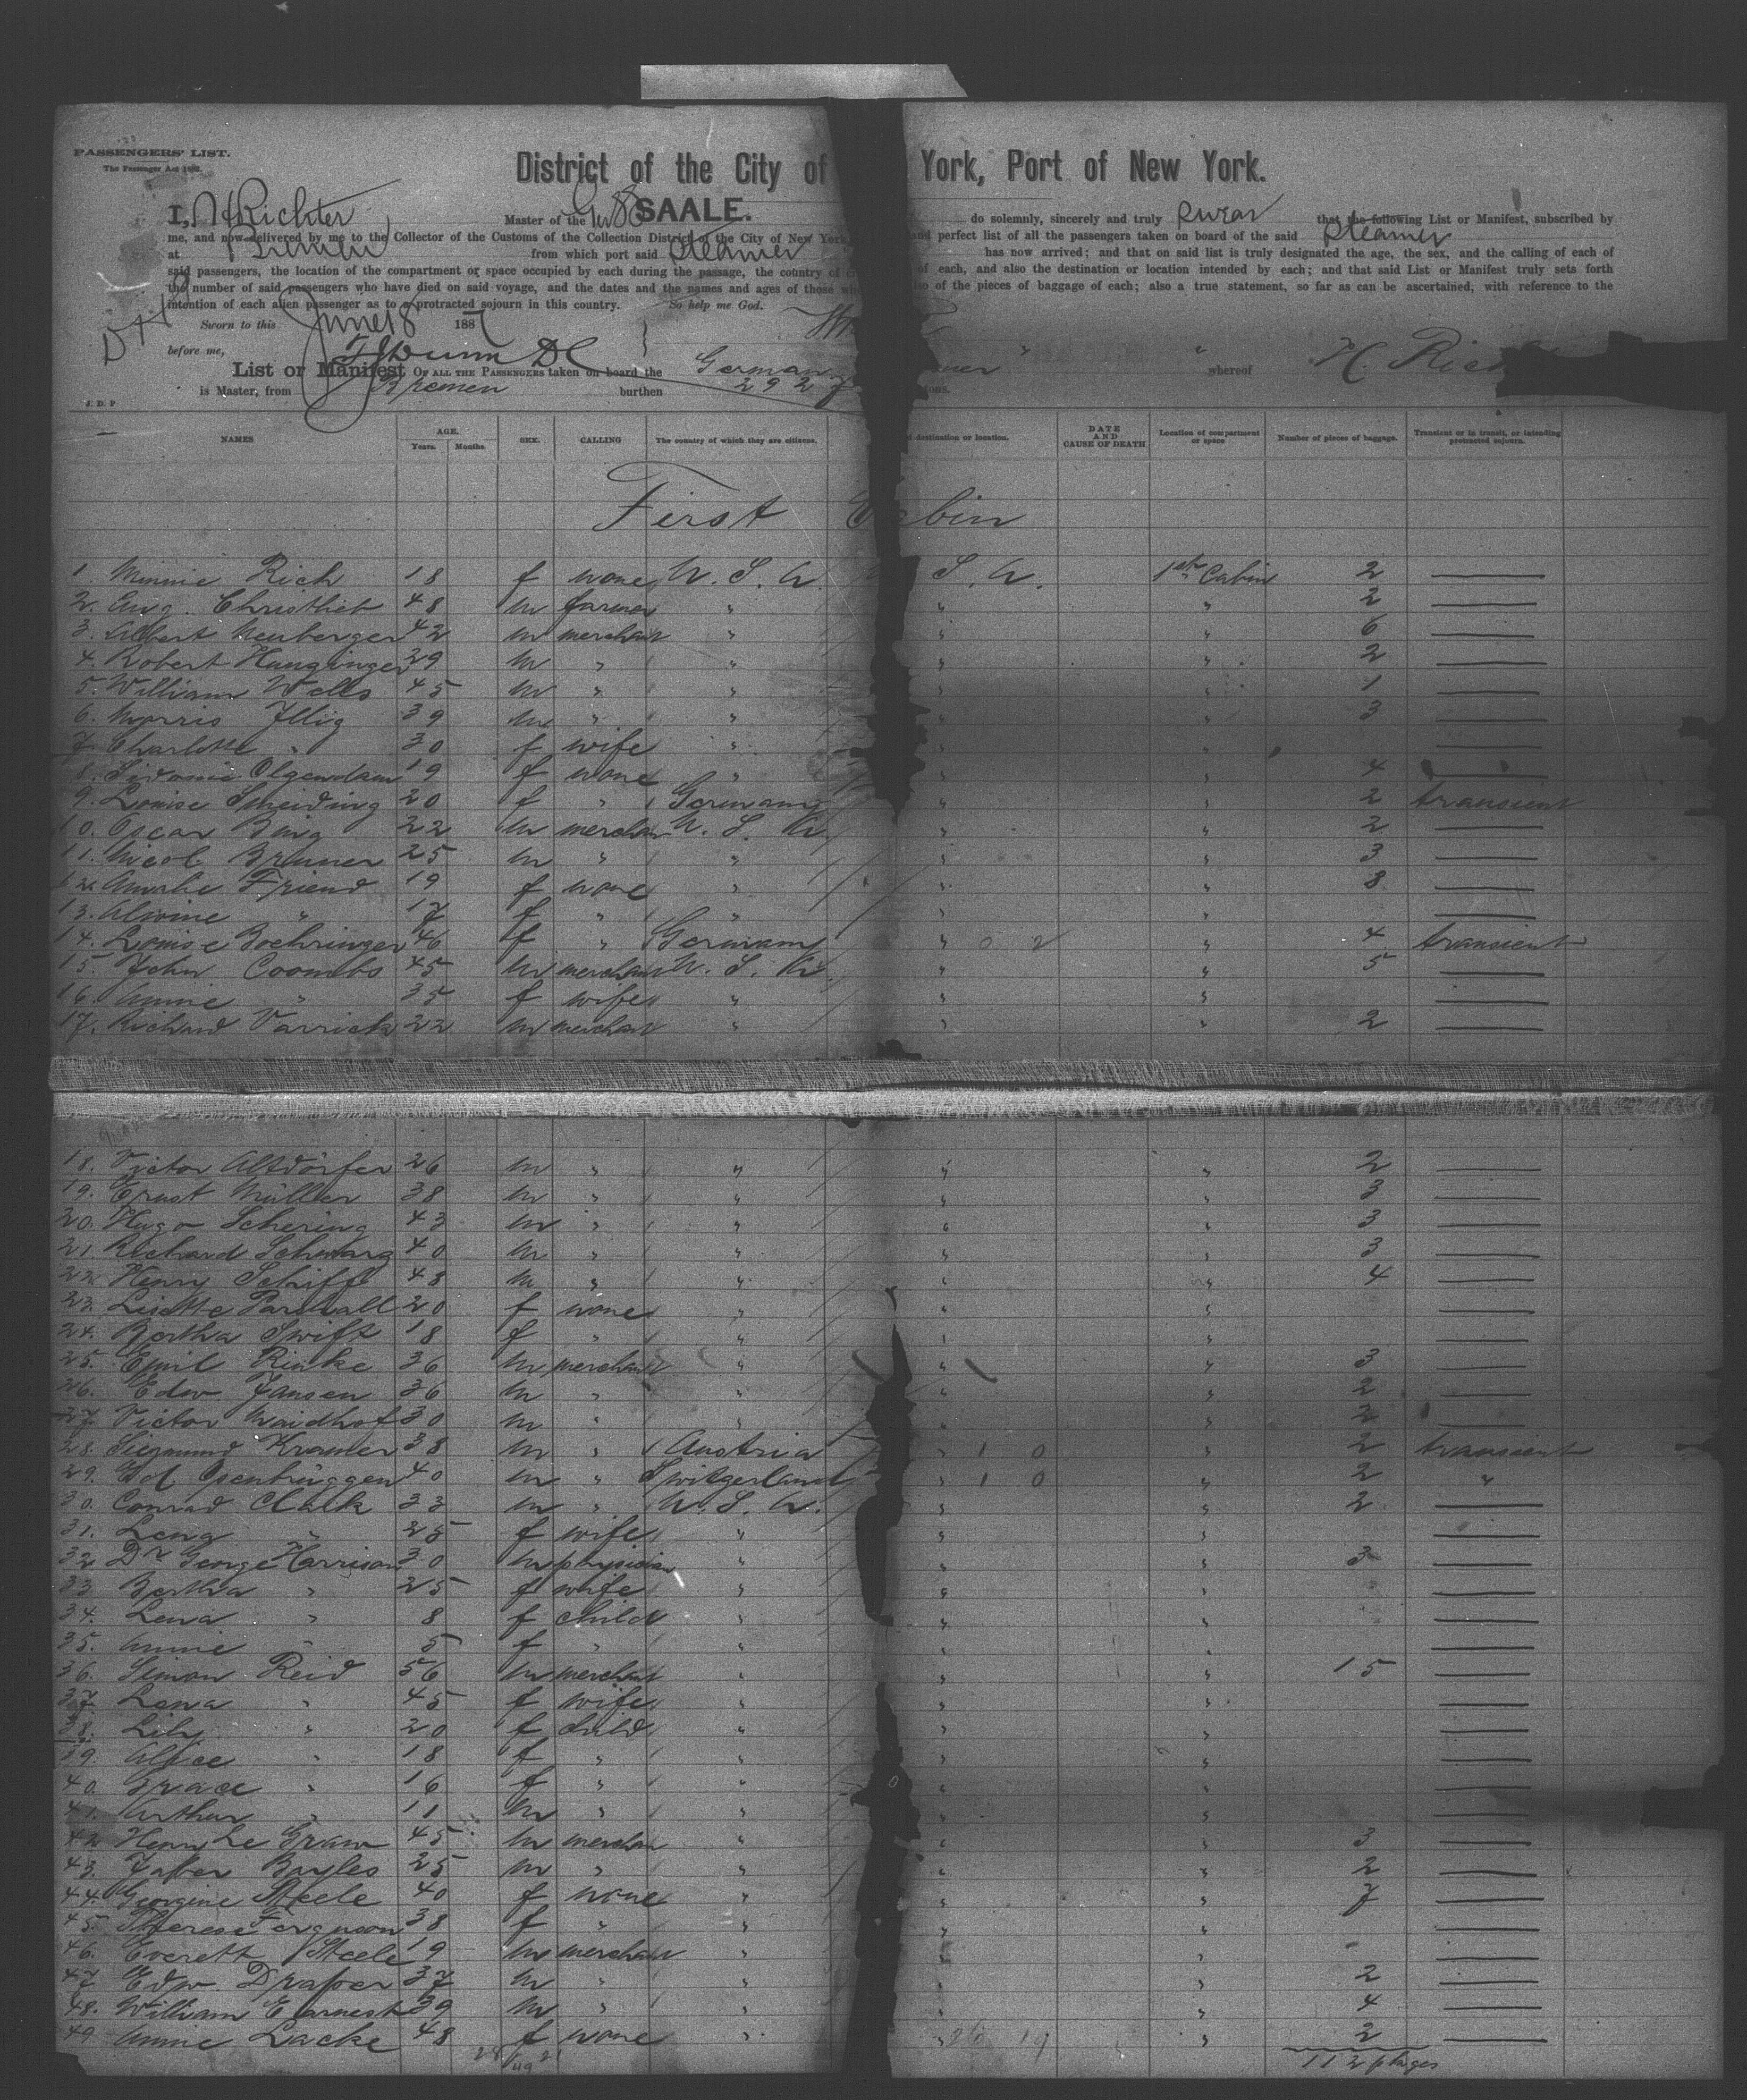 PASSENGERS' LIST.
The Passenger Act 1882.
District of the City of York, Port of New York.
I, H Richter Master of the SAALE. do solemnly, sincerely and truly swear that the following List or Manifest, subscribed by
me, and now delivered by me to the Collector of the Customs of the Collection District of the City of New York, and perfect list of all the passengers taken on board of the said Steamer
at Bremen from which port said Steamer has now arrived; and that on said list is truly designated the age, the sex, and the calling of each of
said passengers, the location of the compartment or space occupied by each during the passage, the country of of each, and also the destination or location intended by each; and that said List or Manifest truly sets forth
the number of said passengers who have died on said voyage, and the dates and the names and ages of those who of the pieces of baggage of each; also a true statement, so far as can be ascertained, with reference to the
intention of each alien passenger as to a protracted sojourn in this country. So help me God.
Sworn to this June 18 1887
before me,
List or Manifest OF ALL THE PASSENGERS taken on board the German " " whereof H. Rich
is Master, from Bremen burthen 2927 tons.
J. D. P
NAMES AGE. Years. Months. SEX. CALLING The country of which they are citizens. destination or location. DATE AND CAUSE OF DEATH Location of compartment or space Number of pieces of baggage. Transient or in transit, or intending protracted sojourn.
First Cabin
1. Minnie Rich 18 f none U. S. A. S. A. 1st Cabin 2 —
2. Aug. Christlieb 48 m farmer " " " 2 —
3. Albert Neuberger 42 m merchant " " " 6 —
4. Robert Hunginger 29 m " " " " 2 —
5. William Wells 45 m " " " " 1 —
6. Morris Illig 39 m " " " " 3 —
7. Charlotte " 30 f wife " " " —
8. Sidonie Olgendam 19 f none " " " 4 —
9. Louise Smeiding 20 f " Germany " " 2 transient
10. Oscar Bing 22 m merchant U. S. A. " " 2 —
11. Nicol. Brunner 25 m " " " " 3 —
12. Amalie Friend 19 f none " " " 8 —
13. Alwine " 17 f " " " " —
14. Louise Boehringer 46 f " Germany " 0 2 " 4 transient
15. John Coombs 45 m merchant U. S. A. " " 5 —
16. Annie " 35 f wife " " " —
17. Richard Varrick 22 m merchant " " " 2 —
18. Victor Altdörfer 26 m " " " " 2 —
19. Ernst Müller 38 m " " " " 3 —
20. Hugo Schering 43 m " " " " 3 —
21. Richard Schwarz 40 m " " " " 3 —
22. Henry Schiff 48 m " " " " 4 —
23. Lisette 20 f none " " " —
24. Bertha Swift 18 f " " " " —
25. Emil Rinke 36 m merchant " " " 3 —
26. Edw Jansen 36 m " " " " 2 —
27. Victor Maidhof 30 m " " " " 2 —
28. Siegmund Kramer 38 m " Austria " 1 0 " 2 transient
29. Ed. Osenbrüggen 40 m " Switzerland " 1 0 " 2 "
30. Conrad Clark 33 m " U. S. A. " " 2 —
31. Lena " 25 f wife " " " —
32. Dr George Harrison 30 m physician " " " 3 —
33 Bertha " 25 f wife " " " —
34. Lena " 8 f child " " " —
35. Annie " 5 f " " " " —
36. Simon Reid 56 m merchant " " " 15 —
37. Lena " 45 f wife " " " —
38. Lily " 20 f child " " " —
39. Alice " 18 f " " " " —
40. Grace " 16 f " " " " —
41. Arthur " 11 m " " " " —
42. Henry Le Graw 45 m merchant " " " 3 —
43. Jasper Bayles 25 m " " " " 2 —
44. Georgine Steele 40 f none " " " 7 —
45. Therese Ferguson 38 f " " " " —
46. Everett Steele 19 m merchant " " " —
47. Edw. Draper 37 m " " " " 2 —
48. William Earnest 39 m " " " " 4 —
49. Annie Lacke 48 f none " " 26 19 " 2 —
28 21 112 pkages